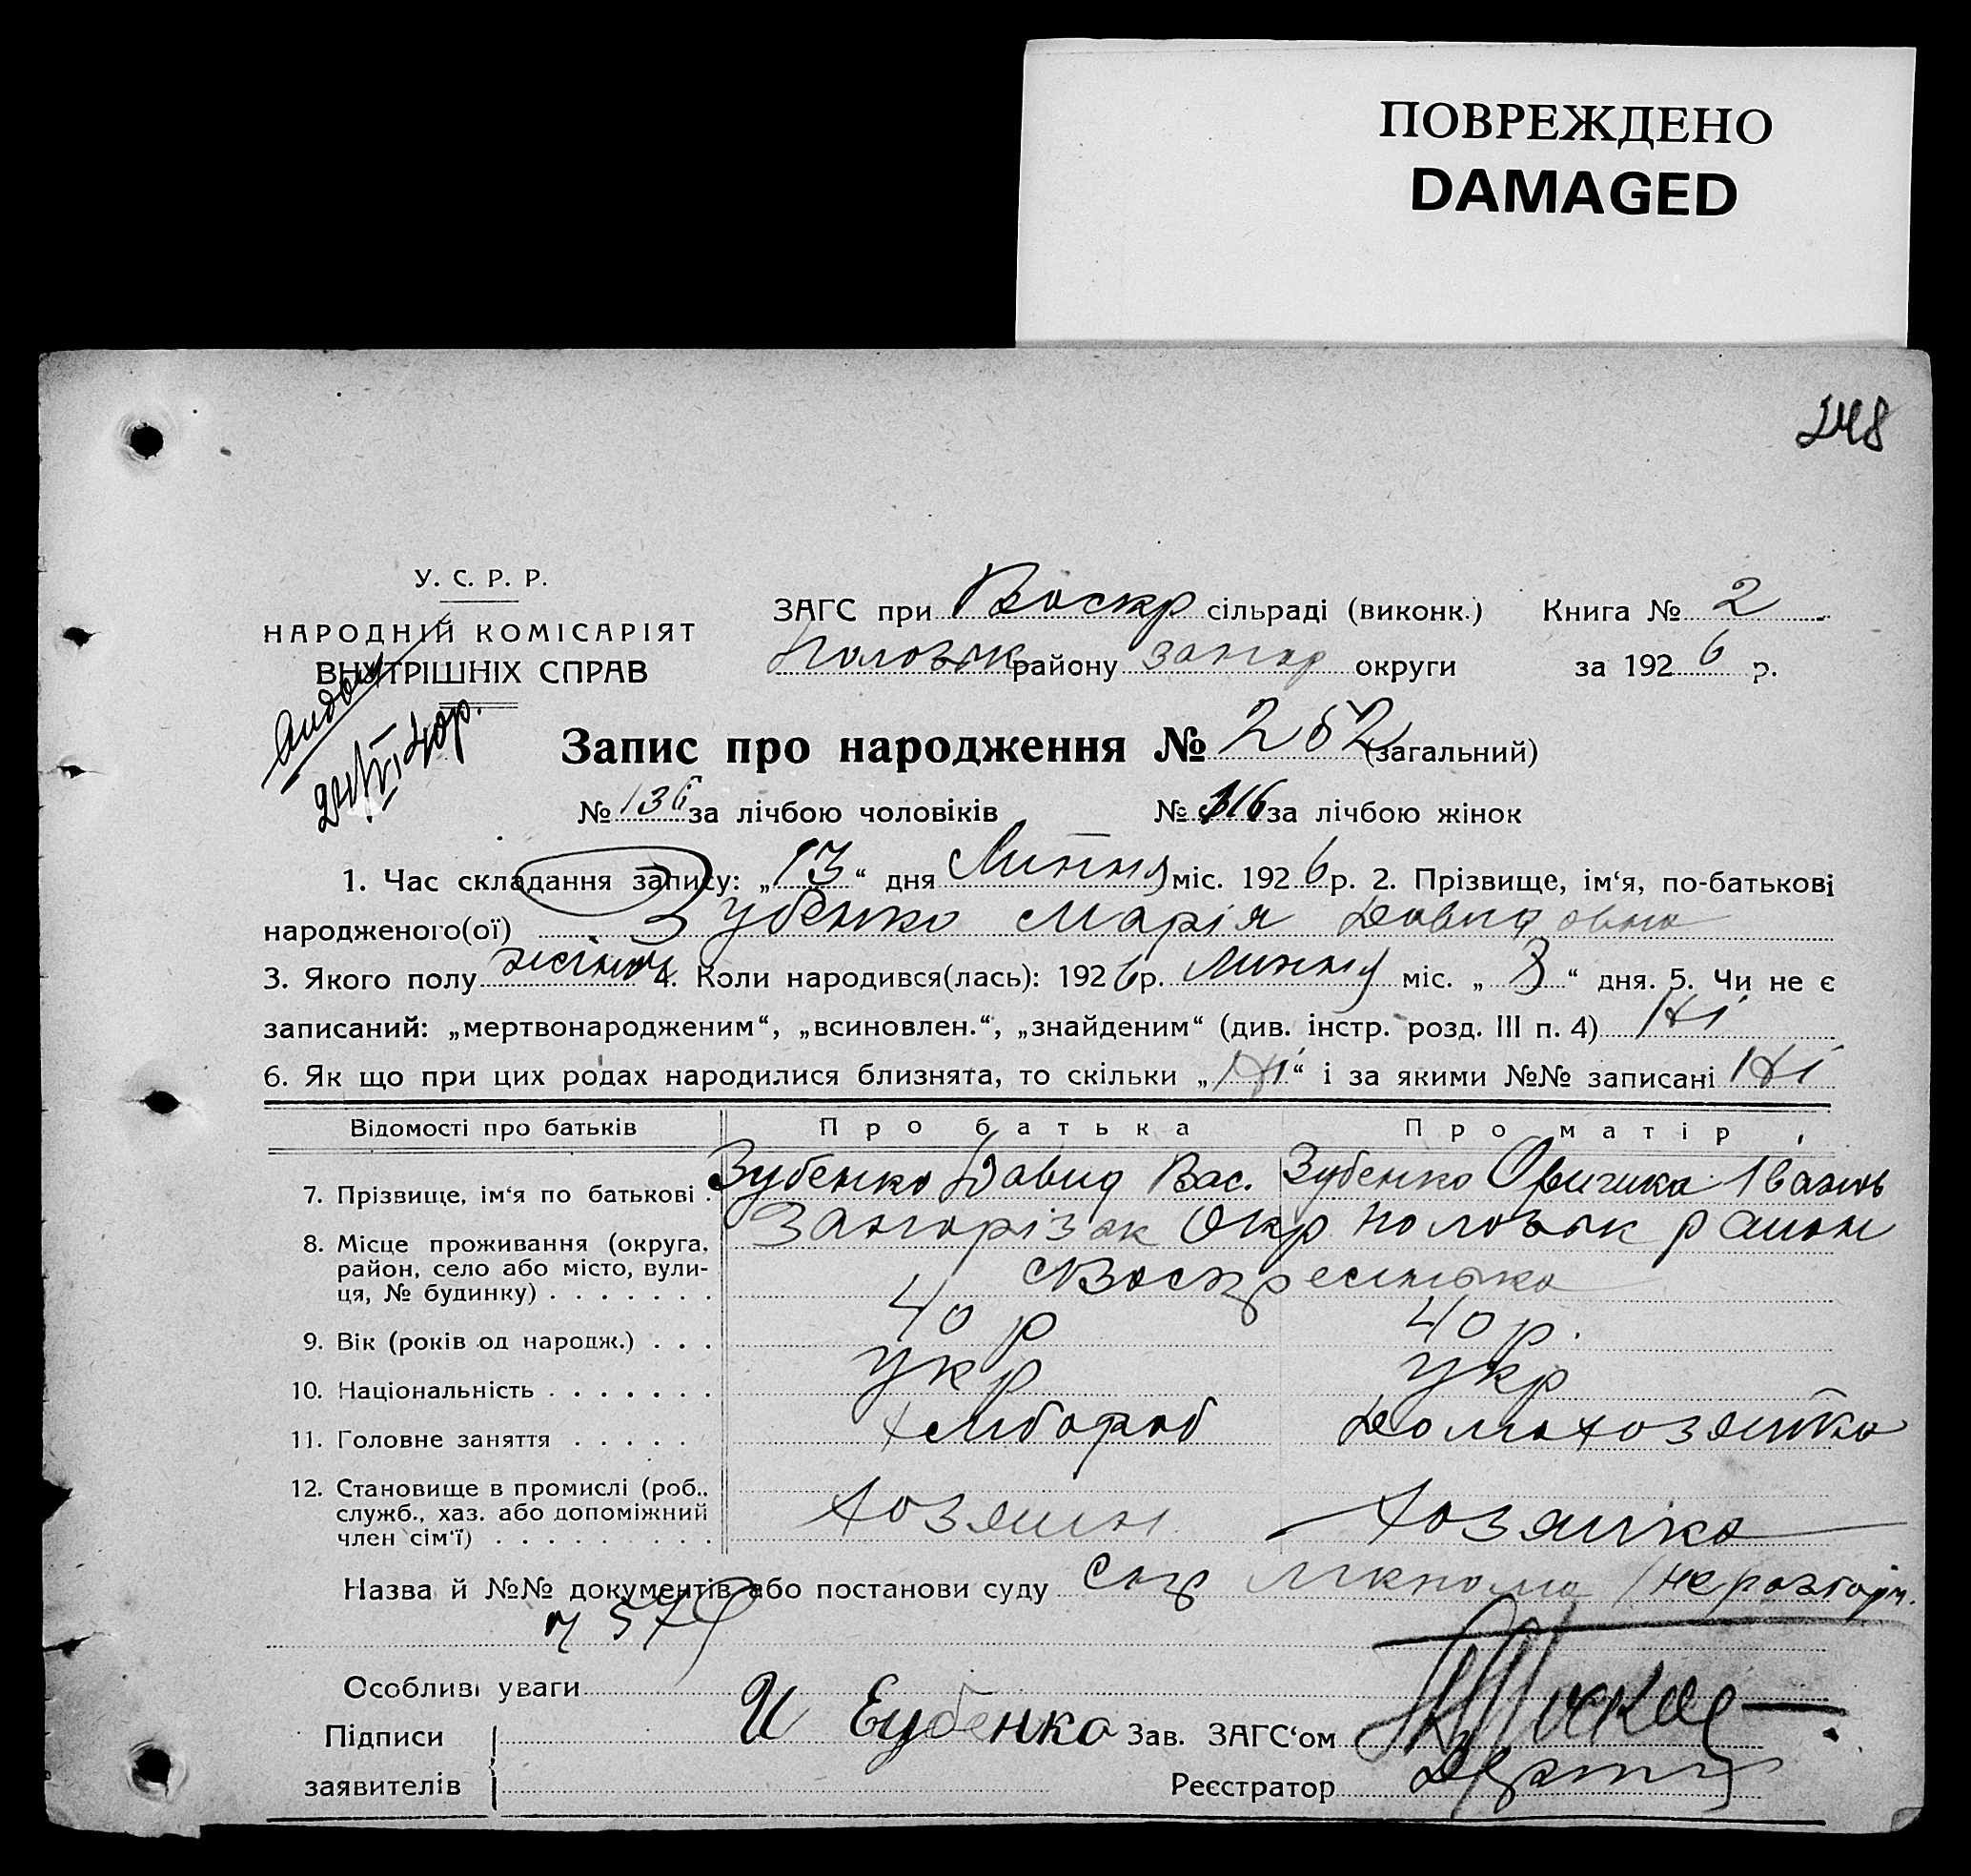 ПОВРЕЖДЕНО
DAMAGED
248
У. С. Р. Р.
НАРОДНІЙ КОМІСАРІЯТ
ВНУТРІШНІХ СПРАВ
ЗАГС при Воскр сільраді (виконк.) Книга № 2
Пологівськ району Запор округи за 1926 р.
Запис про народження № 252 (загальний)
№ 136 за лічбою чоловіків № 116 за лічбою жінок
1. Час складання запису: „13“ дня Липня міс. 1926 р. 2. Прізвище, ім‘я, по-батькові
народженого(ої) Зубенко Марія Давидовна
3. Якого полу жіноч 4. Коли народився(лась): 1926 р. Липня міс. „3“ дня. 5. Чи не є
записаний: „мертвонародженим“, „всиновлен.“, „знайденим“ (див. інстр. розд. III п. 4) Ні
6. Як що при цих родах народилися близнята, то скільки „Ні“ і за якими №№ записані Ні
Відомості про батьків Про батька Про матір
7. Прізвище, ім‘я по батькові . Зубенко Давид Вас. Зубенко Оришка Івановь
8. Місце проживання (округа, район, село або місто, вулиця, № будинку) Запорізьк Окр район
Воскресенька
9. Вік (років од народж.) . . . 40 р 40 р.
10. Національність . . . . . . . укр укр
11. Головне заняття . . . . . хлібороб Домохозяйка
12. Становище в промислі (роб.,
служб., хаз. або допоміжний
член сім‘ї) . . . . . . . . . хозяин хозяйка
Назва й №№ документів або постанови суду
Особливі уваги
Підписи И Зубенко Зав. ЗАГС‘ом
заявителів Реєстратор